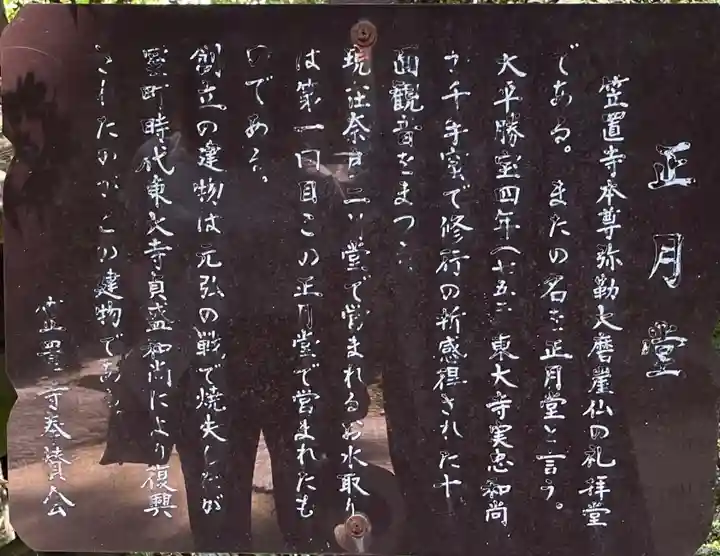 正月堂
笠置寺本尊弥勒大磨崖仏の礼拝堂
である。またの名を正月堂と言う。
大平勝宝四年(七五二 東大寺実忠和尚
が千手窟で修行の折感得された十一
面観音をまつる
現在奈良二月堂で営まれるお水取り
は第一回目この正月堂で営まれたも
のである。
創立の建物は元弘の戦で焼失したが
室町時代東大寺貞盛和尚により復興
されたのがこの建物である。
笠置寺奉賛会